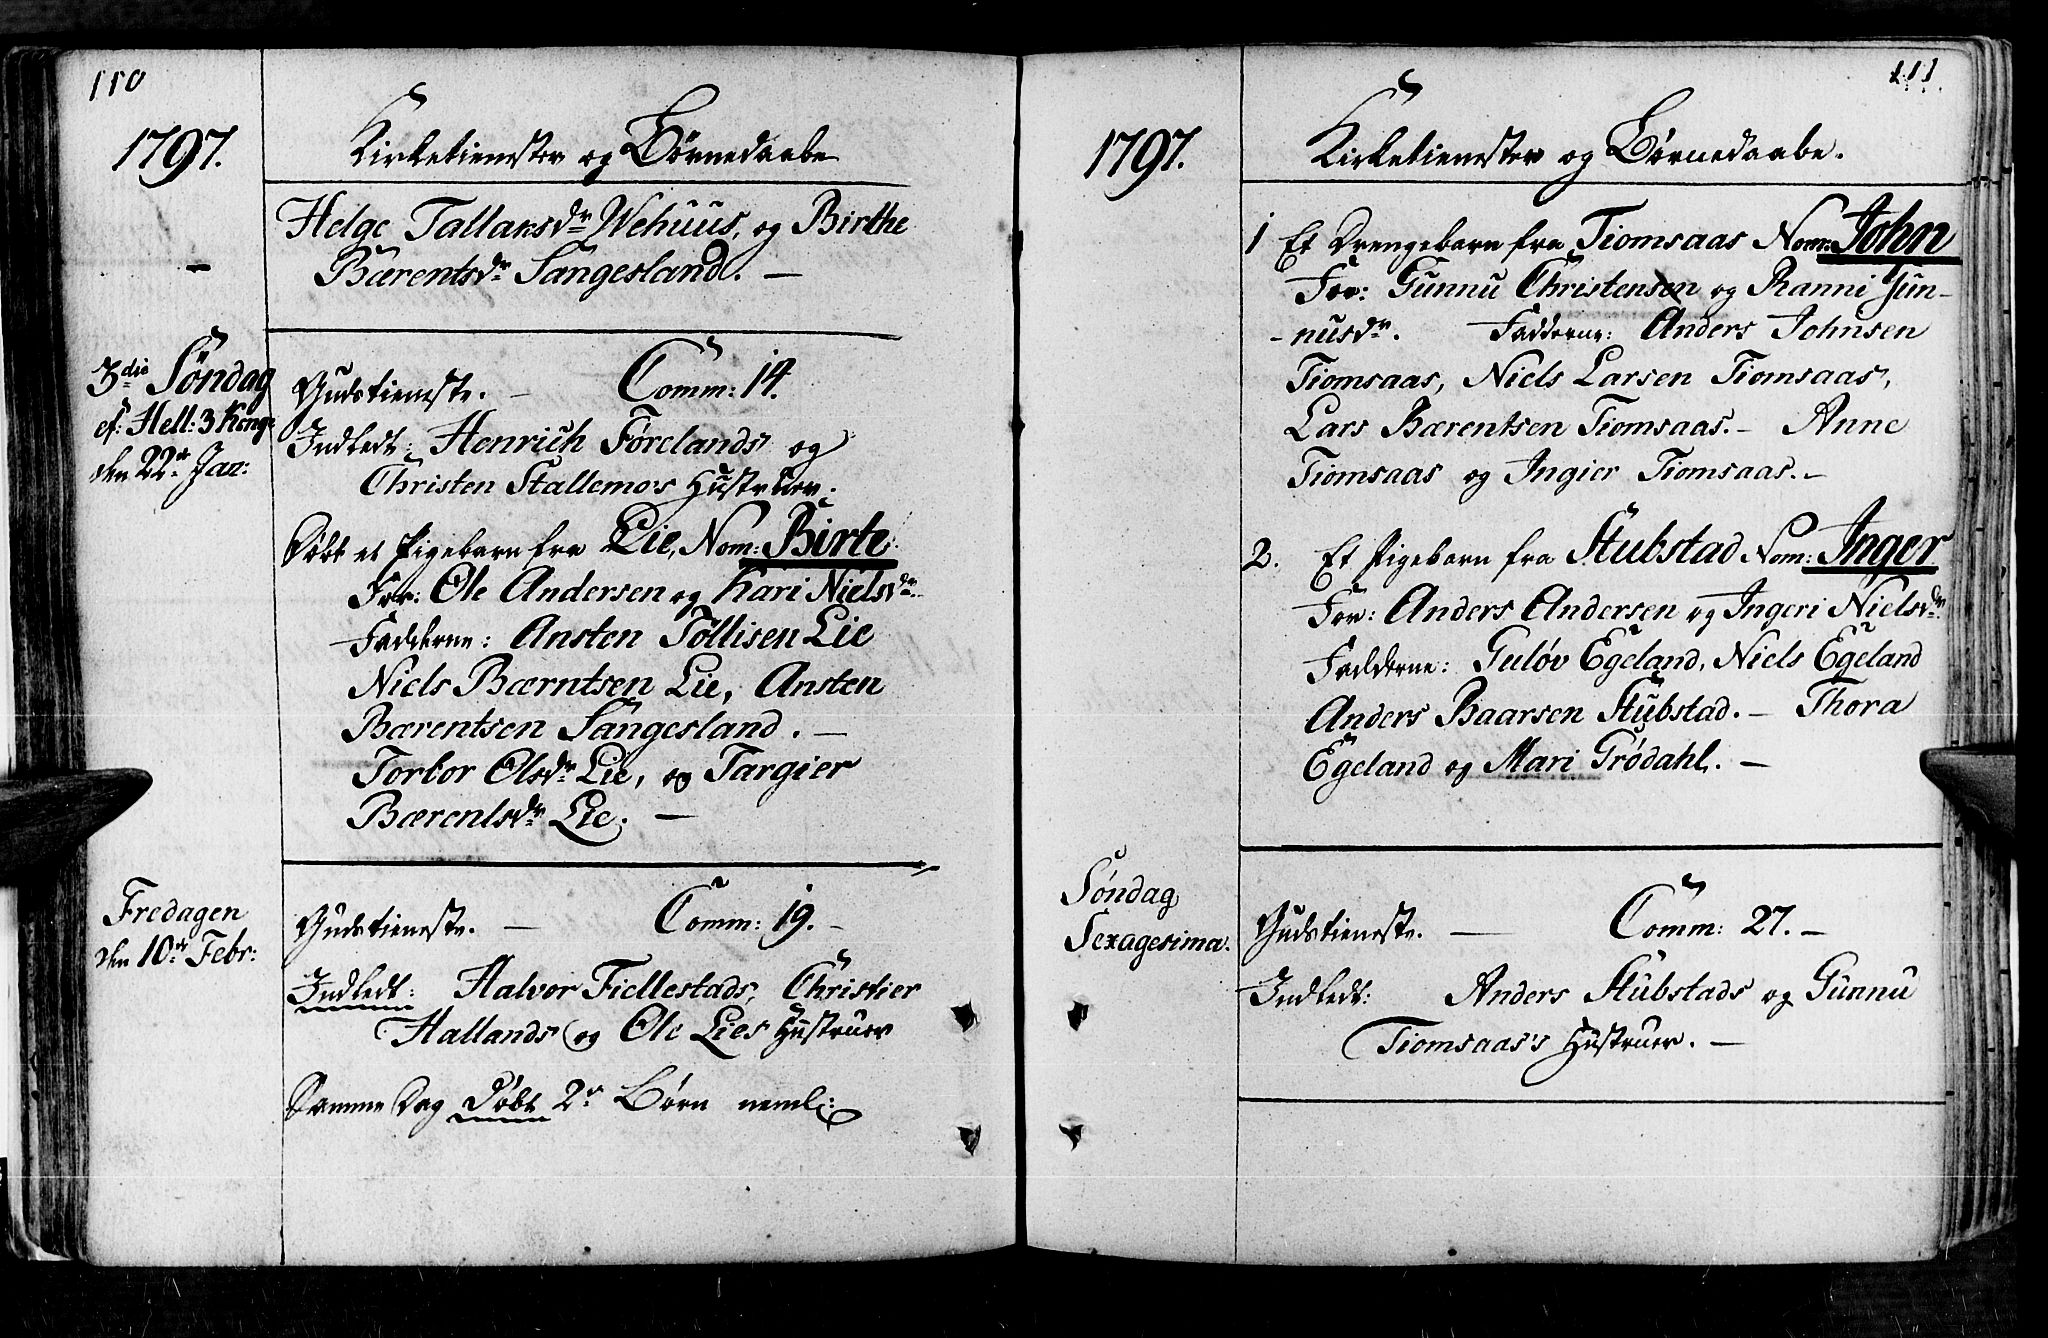 110
1797.
Kirketienester og Børnedaabe
Helge Tallaksdr Wehuus, og Birthe
Bærentsdr Sangesland. —
3die Søndag
ef: Hell: 3 Kong:
den 22de Jan:
Gudstieneste. — Comm: 14.
Indledt: Henrich Førelands og
Christen Stallemos Hustruer.
Døbt et Pigebarn fra Lie, Nom: Birte.
For: Ole Andersen og Kari Nielsdr.
Fadderne: Ansten Tollisen Lie
Niels Bærntsen Lie, Ansten
Bærentsen Sangesland. —
Torbor Olsdr Lie, og Targier
Bærentsdr Lie. —
Fredagen
den 10de Febr:
Gudstieneste. — Comm: 19. —
Indledt: Halvor Fiellestads, Christier
Hallands og Ole Lies Hustruer
Samme Dag Døbt 2de Børn neml:
111.
1797.
Kirketienester og Børnedaabe.
1 Et Drengebarn fra Tiomsaas Nom: John
For: Gunnu Christensen og Ranni Gun-
-nusdr. Fadderne: Anders Johnsen
Tiomsaas, Niels Larsen Tiomsaas,
Lars Bærentsen Tiomsaas. — Anne
Tiomsaas og Ingier Tiomsaas. —
2. Et Pigebarn fra Stubstad Nom: Inger
For: Anders Andersen og Ingeri Nielsdr.
Fadderne: Guløv Egeland, Niels Egeland
Anders Baarsen Stubstad. — Thora
Egeland og Mari Grødahl. —
Søndag
Sexagesima.
Gudstieneste. — Comm: 27. —
Indledt: Anders Stubstads og Gunnu
Tiomsaas's Hustruer. —